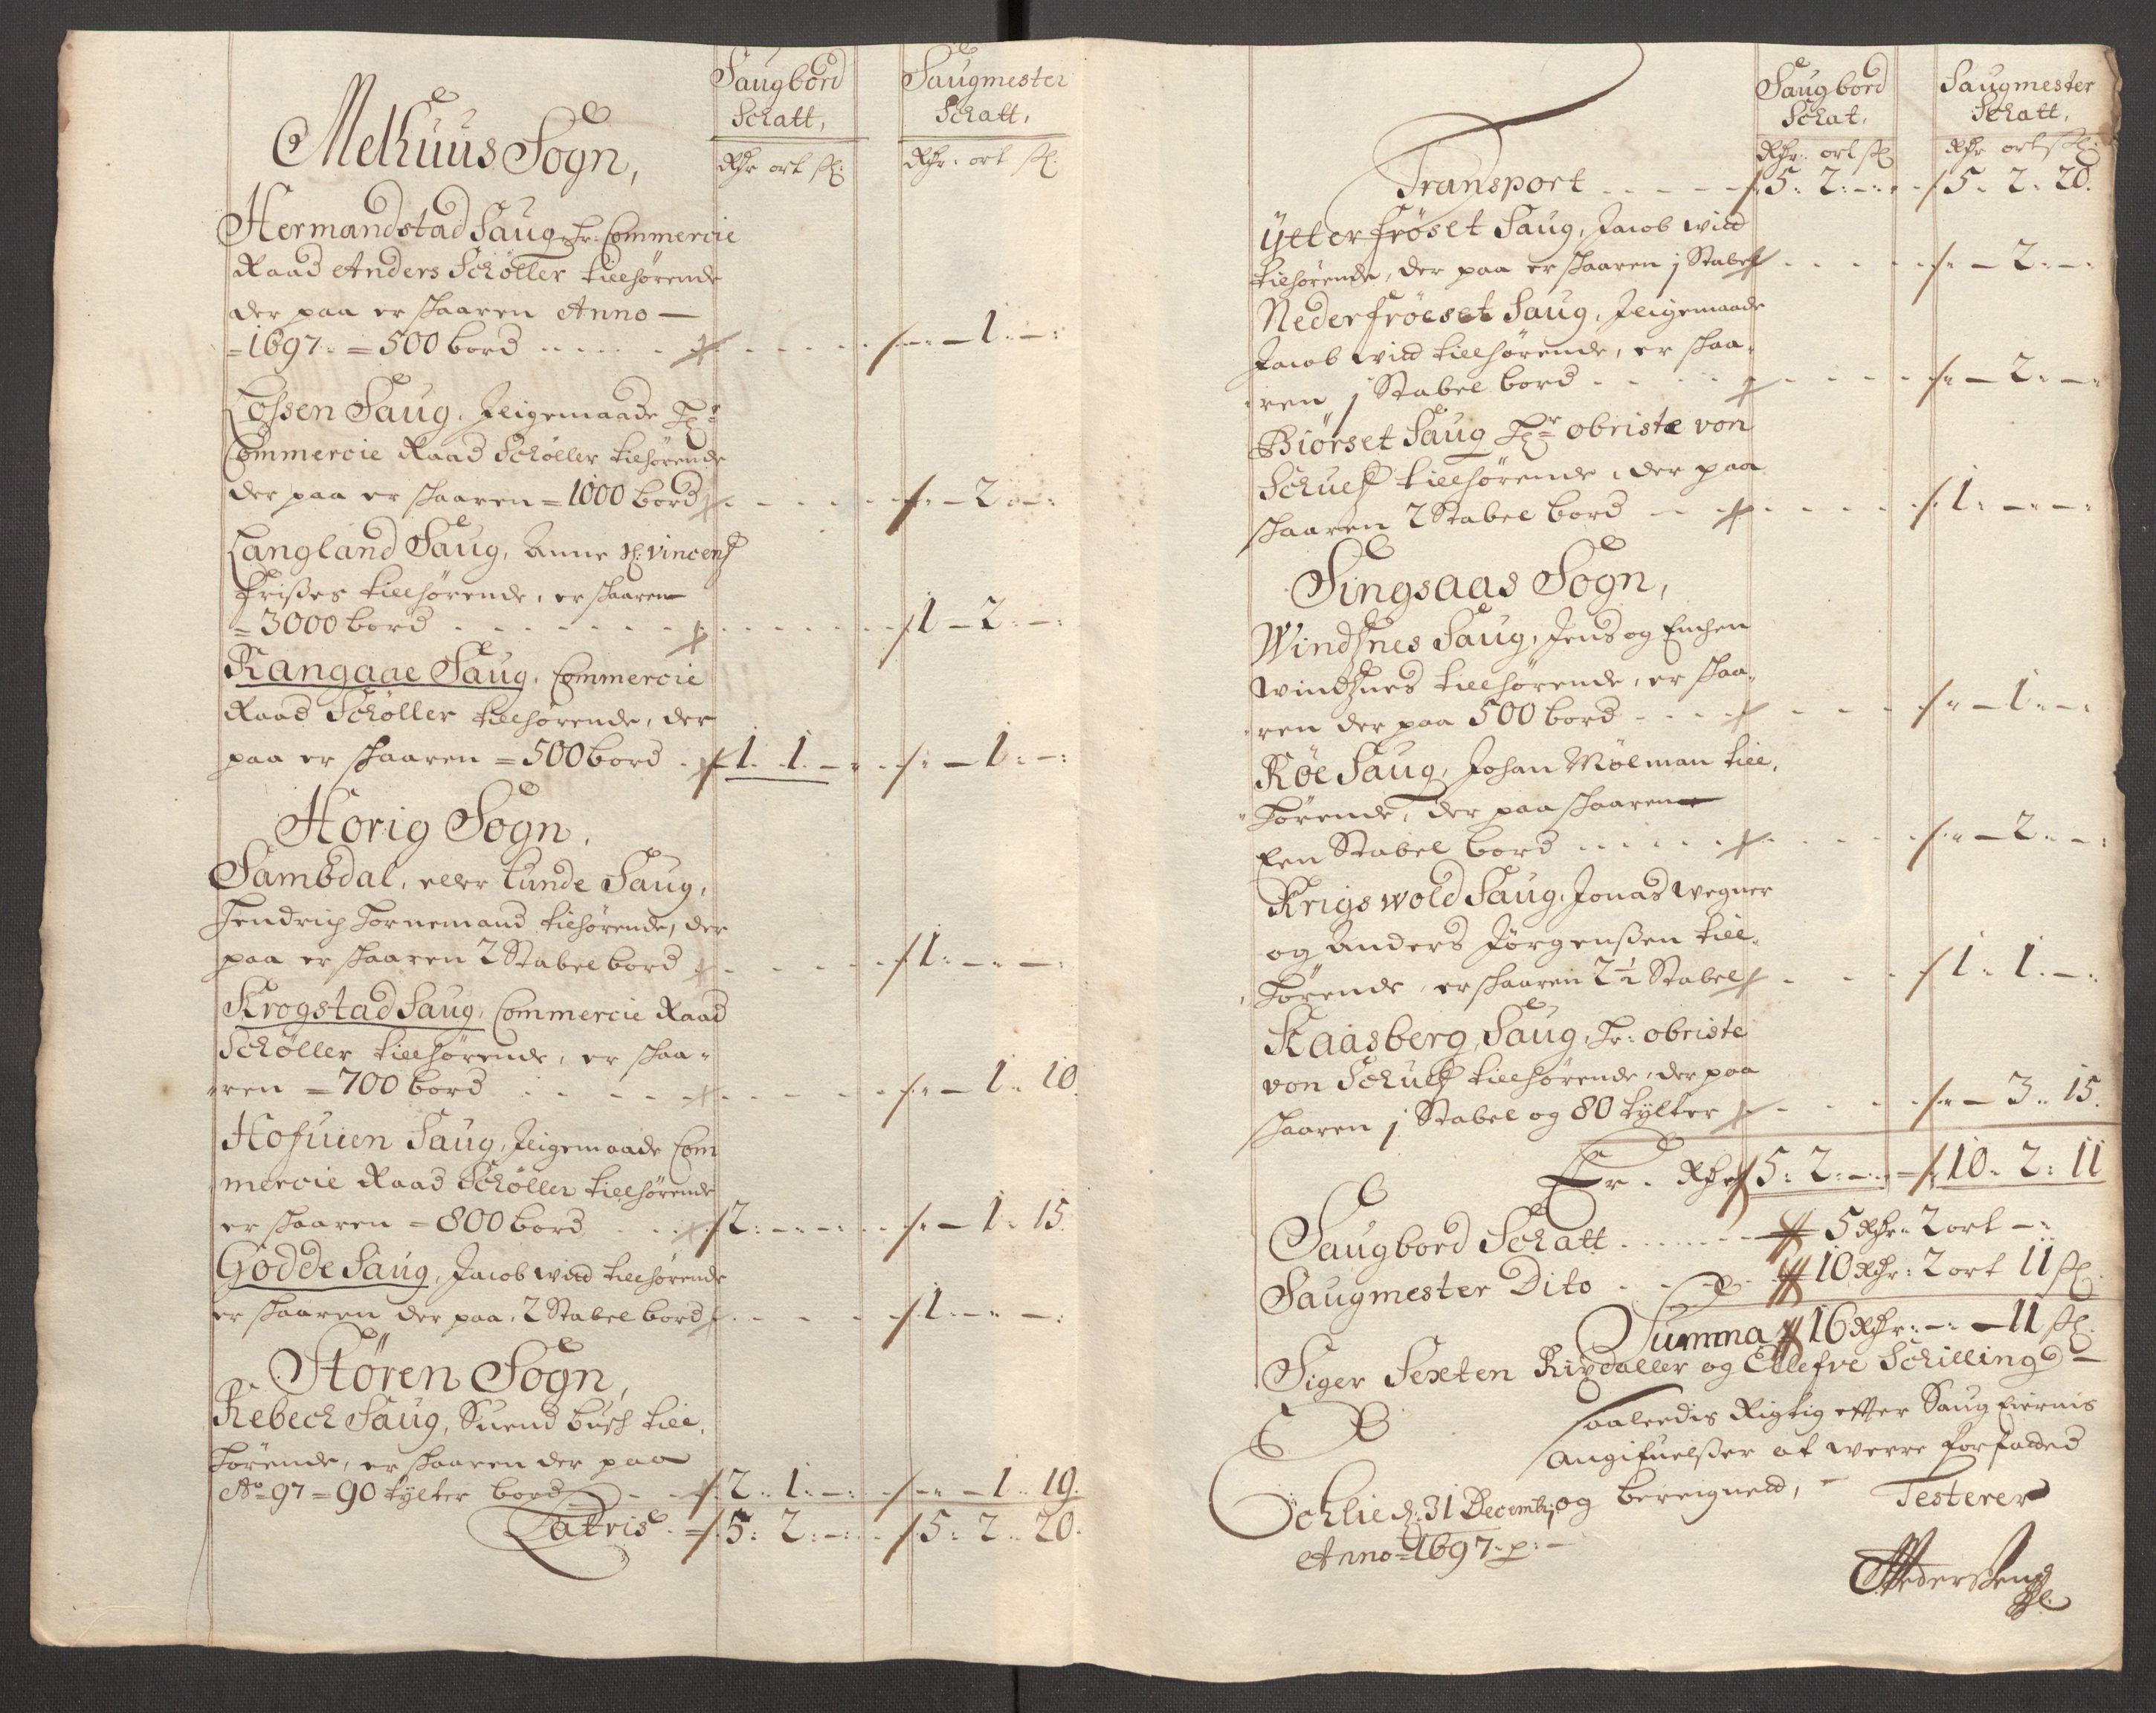 Saugbord Schatt, Saugmester Schatt,
Melhuus Sogn,
Rdr ort sk: Rdr: ort sk:
Hermandstad Saug, Hr. Commercie
Raad Anders Schøller tilhørende
der paa er skaaren Anno —
= 1697 = 500 bord . . . . . — 1 . — :
Lossen Saug, Jligemaade Hr:
Commercie Raad Schøller tilhørende
der paa er skaaren = 1000 bord . . . — 2 . — :
Langland Saug, Anne Sl: Vincens
Frises tilhørende, er skaaren
= 3000 bord . . . . . 1 — 2 . — :
Kangaae Saug, Commercie
Raad Schøller tilhørende, der
paa er skaaren = 500 bord . 1 . 1 . — . . — 1 : — :
Horig Sogn,
Sambdal, eller Lunde Saug,
Hendrich Hornemand tilhørende, der
paa er skaaren 2 Stabel bord . . . 1 : — . — :
Krogstad Saug, Commercie Raad
Schøller tilhørende, er skaa-
ren = 700 bord . . . . . — 1 . 10.
Hofuien Saug, Jligemaade Com
mercie Raad Schøller tilhørende
er skaaren = 800 bord . . 2 : — . — : . . — 1 . 15.
Godde Saug, Jacob Wild tilhørende
er skaaren der paa, 2 Stabel bord . . . 1 . — . — :
Støren Sogn,
Rebech Saug, Suend Busch till,
hørende, er skaaren der paa
Ao 97 = 90 tylter bord . . 2 . 1 . — : . . — 1 . 19.
Latris . = 5 : 2 : — : . . 5 : 2 . 20.
Saugbord Schat, Saugmester Schatt,
Rdr: ort sk Rdr ort sk:
Transport . . . . . 5 : 2 : — : . . 5 . 2 . 20.
Ytter frøset Saug, Jacob Wild
tilhørende, der paa er skaaren j Stabel . . . — 2 : — :
Neder frøeset Saug, Jligemaade
Jacob Wild tilhørende, er skaa-
ren j Stabel bord . . . . — 2 . — :
Biørset Saug Hr: obriste von
Schults tilhørende, der paa
skaaren 2 Stabel bord — . . . . 1 : — . — :
Singsaas Sogn,
Windsnes Saug, Jens og Enchen
Windsnes tilhørende, er skaa-
ren der paa 500 bord . . . . — 1 . — :
Røe Saug, Johan Mølman till,
hørende, der paa skaaren
Een Stabel bord . . . . . — 2 . — :
Krigswold Saug, Jonas Wegner
og Anders Jørgenssen till,
hørende, er skaaren 2 ½ Stabel . . . 1 . 1 . — :
Kaasberg Saug, Hr: obriste
von Schults tilhørende, der paa
skaaren j Stabel og 80 tylter . . . — 3 . 15.
Er . Rdr 5 : 2 : — : = 10 . 2 : 11
Saugbord Schatt . . . . . . 5 Rdr . 2 ort — :
Saugmester Dito . . . . 10 Rdr : 2 ort 11 sk:
Summa 16 Rdr : — : — 11 sk:
Siger Sexten Rixdaller og Ellefve Schilling —
saaleedis Rigtig efter Saug Eiernis
Angifuelsser at werre forfatted
og bereigned, — Testerer
Sochlie d: 31 Decembr:
Anno = 1697 . p: —
Pederssen